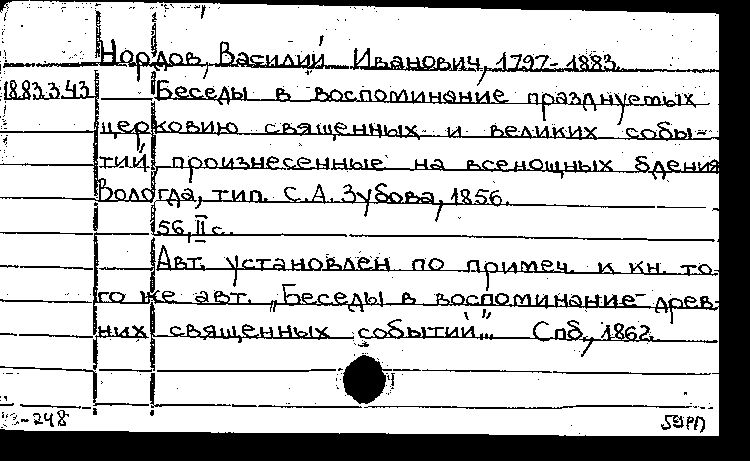 Нордов, Василий Иванович, 1797-1883.
1883.3.43 Беседы в воспоминание празднуемых
церковию священных и великих собы-
тий, произнесенные на всенощных бдения
Вологда, тип. С.А. Зубова, 1856.
56, II с.
Авт. установлен по примеч. к кн. то
го же авт. „Беседы в воспоминание древ-
них священных событий..." Спб., 1862.
3-248